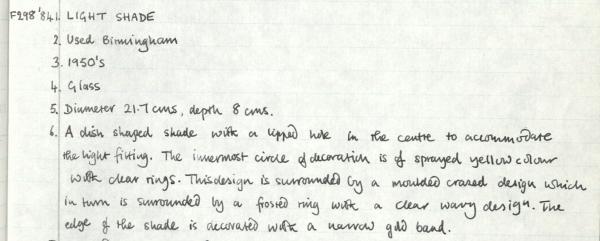 F298'84 1. LIGHT SHADE
2. Used Birmingham
3. 1950's
4. Glass
5. Diameter 21.7 cms, depth 8 cms.
6. A dish shaped shade with a lipped hole in the centre to accommodate
the light fitting. The innermost circle of decoration is of sprayed yellow colour
with clear rings. This design is surrounded by a moulded crazed design which
in turn is surrounded by a frosted ring with a clear wavy design. The
edge of the shade is decorated with a narrow gold band.